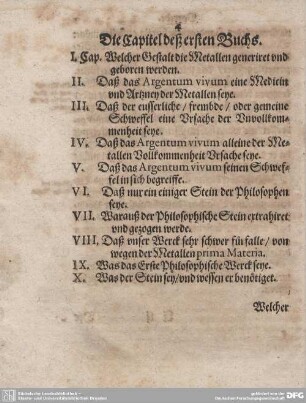 4
Die Capitel deß ersten Buchs.
I. Cap. Welcher Gestalt die Metallen generiret vnd
geboren werden.
II. Daß das Argentum vivum eine Medicin
vnd Artzney der Metallen seye.
III. Daß der eusserliche / frembde / oder gemeine
Schweffel eine Vrsache der Vnvollkom-
menheit seye.
IV. Daß das Argentum vivum alleine der Me-
tallen Vollkommenheit Vrsache seye.
V. Daß das Argentum vivum seinen Schwef-
fel in sich begreiffe.
VI. Daß nur ein einiger Stein der Philosophen
seye.
VII. Warauß der Philosophische Stein extrahiret
vnd gezogen werde.
VIII. Daß vnser Werck sehr schwer fürfalle / von
wegen der Metallen prima Materia.
IX. Was das Erste Philosophische Werck seye.
X. Was der Stein sey / vnd wessen er benötiget.
Welcher